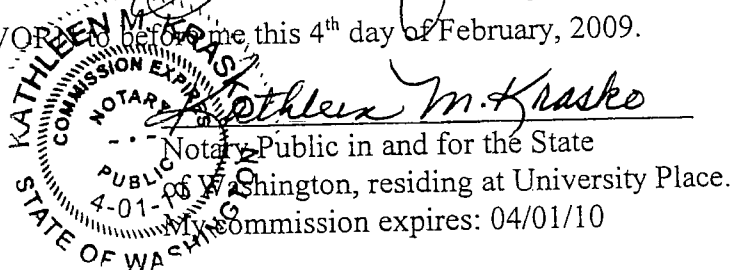 to before me this 4th day of February, 2009.
Kathleen M. Krasko
Notary Public in and for the State
of Washington, residing at University Place.
My commission expires: 04/01/10
KATHLEEN M. KRASKO
STATE OF WASHINGTON
COMMISSION EXPIRES
NOTARY
- • -
PUBLIC
4-01-10